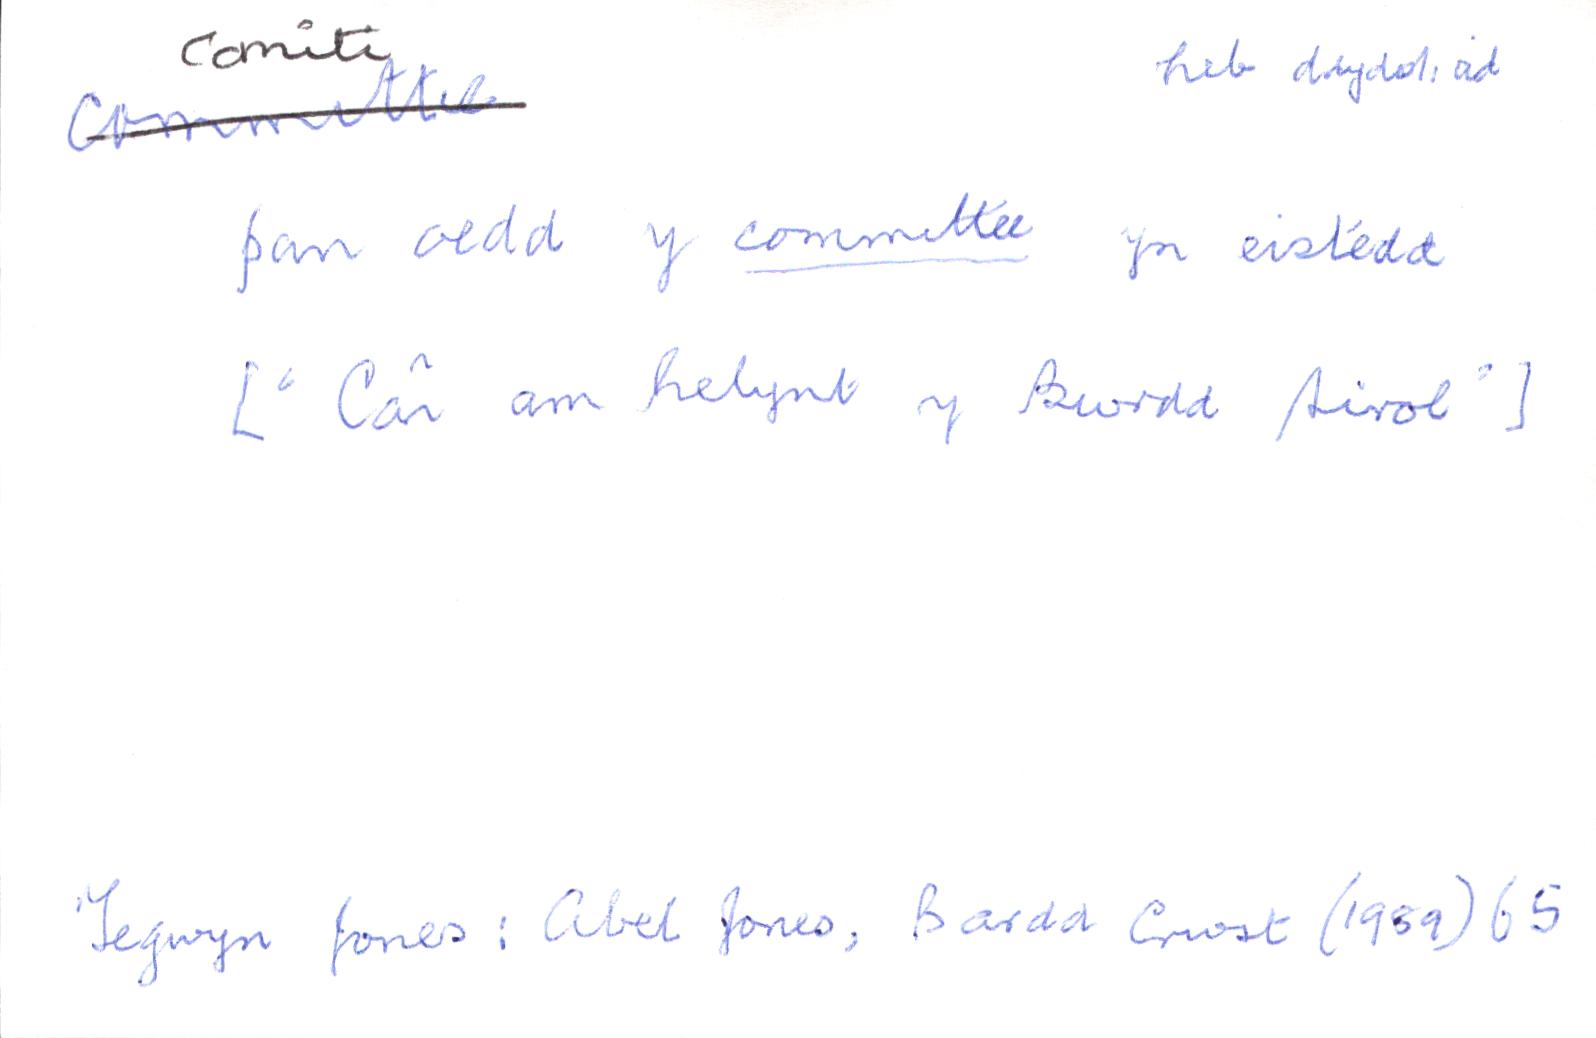 comiti
heb ddyddiad
Committee
pan oedd y committee yn eistedd
["Cân am helynt y Bwrdd Sirol"]
Tegwyn Jones: Abel Jones, Bardd Crwst (1989) 65